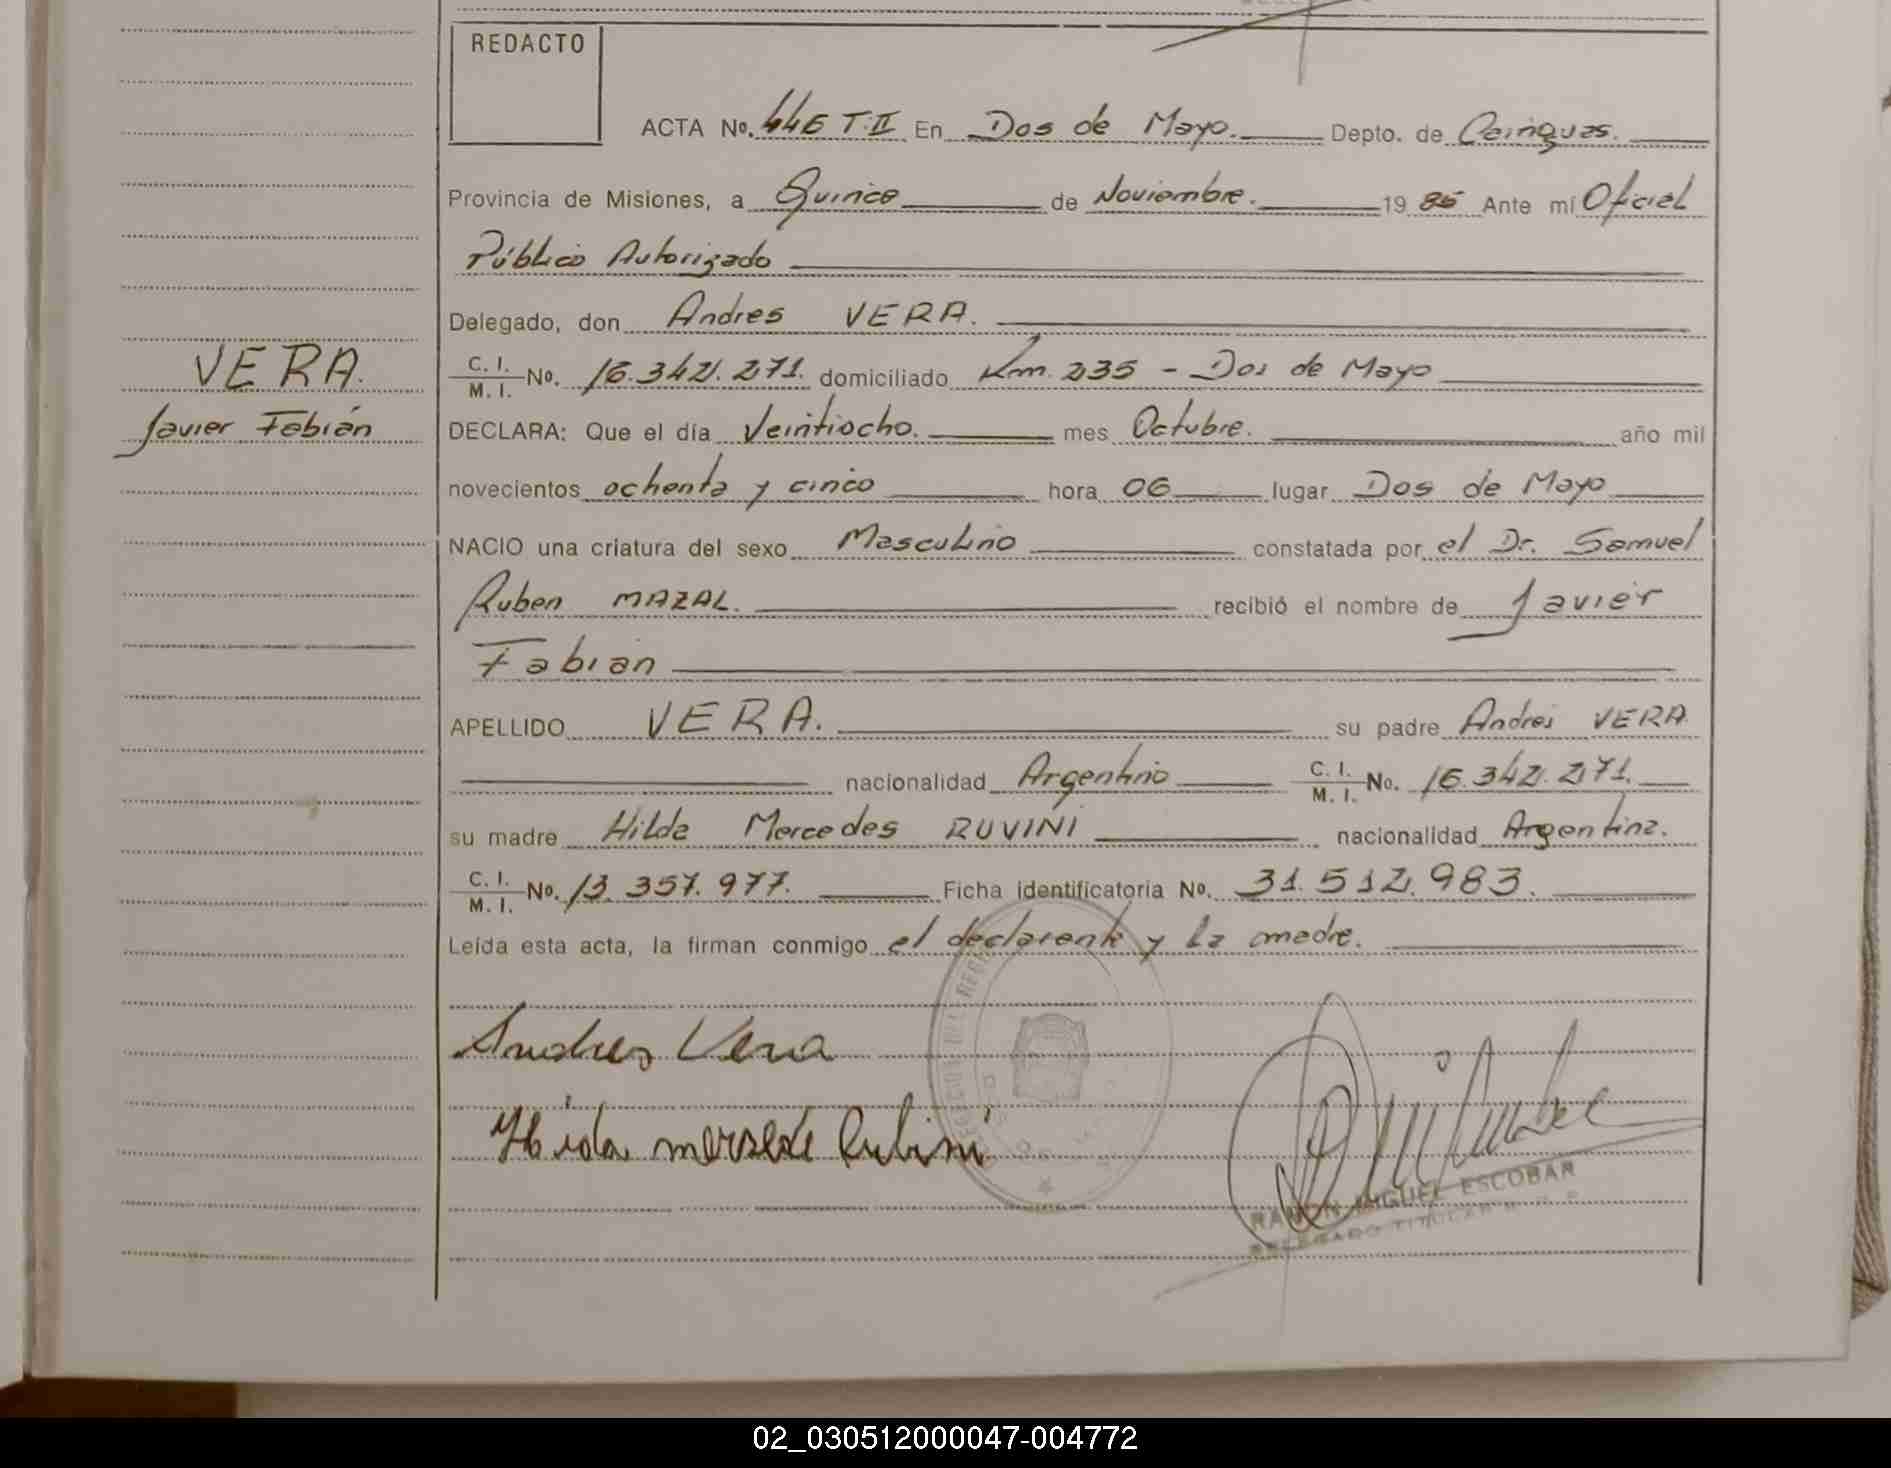 REDACTO
ACTA No. 446 T.II En Dos de Mayo. Depto. de Cainguas.
Provincia de Misiones, a Quince de Noviembre. 19 85 Ante mí Oficial
Público Autorizado
Delegado, don Andres VERA.
C. I. / M. I. No. 16.342.271. domiciliado Km. 235 - Dos de Mayo
VERA.
Javier Fabián
DECLARA: Que el día Veintiocho. mes Octubre. año mil
novecientos ochenta y cinco hora 06 lugar Dos de Mayo
NACIO una criatura del sexo Masculino constatada por el Dr. Samuel
Ruben MAZAL. recibió el nombre de Javier
Fabian
APELLIDO VERA. su padre Andres VERA
nacionalidad Argentino C. I. / M. I. No. 16.342.271.
su madre Hilda Mercedes RUVINI nacionalidad Argentina.
C. I. / M. I. No. 13.357.977. Ficha identificatoria No. 31.512.983.
Leída esta acta, la firman conmigo el declarante y la madre.
Andres Vera
Hilda mersede Rubini
RAMON MIGUEL ESCOBAR
DELEGADO TITULAR
02_030512000047-004772